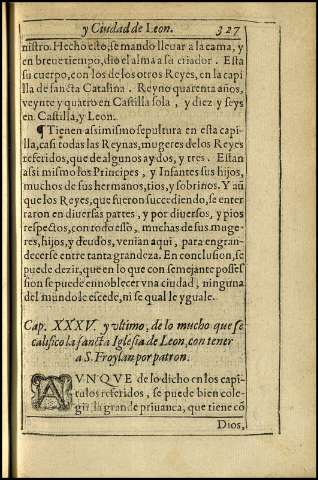 y Ciudad de Leon. 327
nistro. Hecho esto, se mando lleuar a la cama, y
en breue tiempo, dio el alma a sa criador. Esta
su cuerpo, con los de los otros Reyes, en la capi
lla de sancta Catalina. Reyno quarenta años,
veynte y quatro en Castilla sola, y diez y seys
en Castilla, y Leon.
¶ Tienen assimismo sepultura en esta capi-
lla, casi todas las Reynas, mugeres de los Reyes
referidos, que de algunos ay dos, y tres. Estan
assi mismo los Principes, y Infantes sus hijos,
muchos de sus hermanos, tios, y sobrinos. Y aũ
que los Reyes, que fueron succediendo, se enter
raron en diuersas partes, y por diuersos, y pios
respectos, con todo esso, muchas de sus muge-
res, hijos, y deudos, venian aqui, para engran-
decerse entre tanta grandeza. En conclusion, se
puede dezir, que en lo que con semejante posses
sion se puede ennoblecer vna ciudad, ninguna
del mundo le escede, ni se qual le yguale.
Cap. XXXV. y vltimo, de lo mucho que se
califico la sancta Iglesia de Leon, con tener
a S. Froylan por patron.
AVNQVE de lo dicho en los capi-
tulos referidos, se puede bien cole-
gir la grande priuanca, que tiene cõ
Dios,